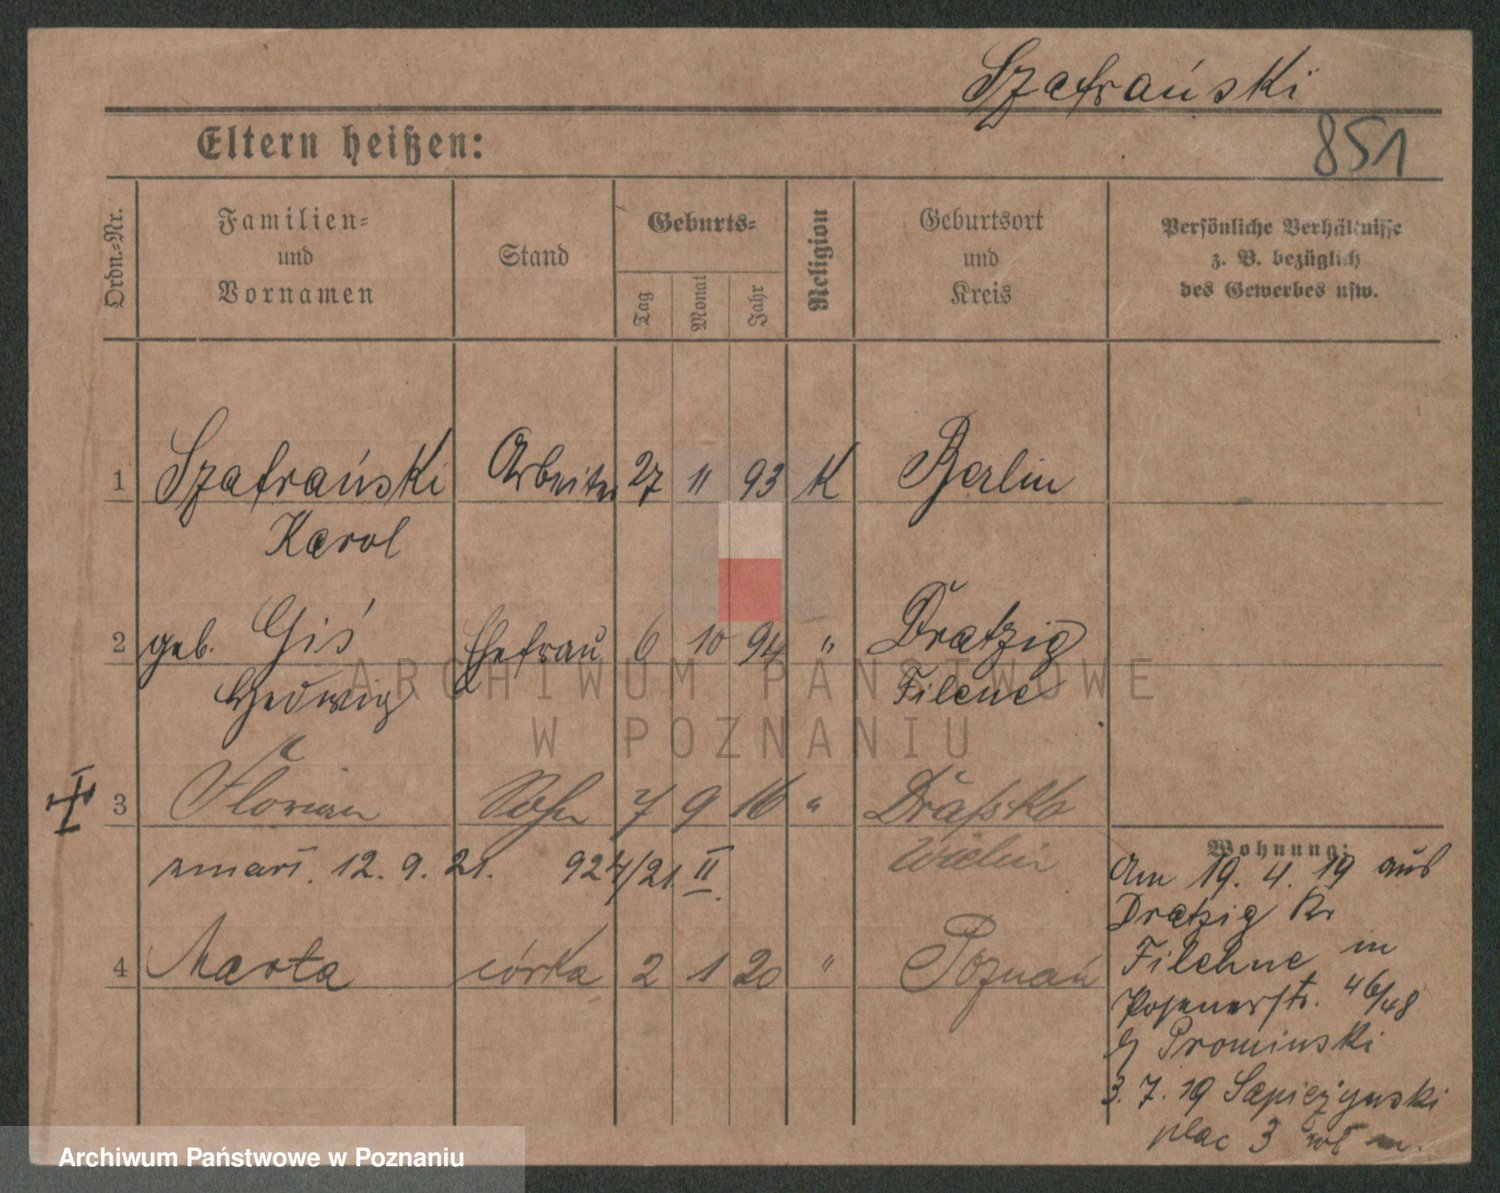 Szafrański
851
Eltern heißen:
Ordn.-Nr.
Familien- und Vornamen
Stand
Geburts-
Tag
Monat
Jahr
Religion
Geburtsort und Kreis
Persönliche Verhältnisse z. B. bezüglich des Gewerbes usw.
1 Szafrański Arbeiter 27 11 93 K Berlin
Karol
2 geb. Giś Ehefrau 6 10 94 " Dratzig
Hedwig Filene
3 Florian Sohn 7 9 16 " Drafsko
zmarł. 12. 9. 21. 924/21 II Wieleń
4 Marta córka 2 1 20 " Poznań
Wohnung:
Am 19. 4. 19 aus
Dratzig Kr
Filehne in
Posenerstr. 46/48
b Prominski
3. 7. 19 Sapieżynski
plac 3
ARCHIWUM PAŃSTWOWE
W POZNANIU
Archiwum Państwowe w Poznaniu